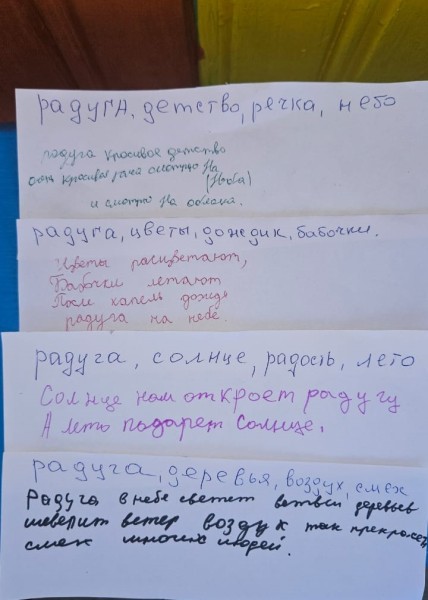 радугА, детство, речка, небо
радуга красивое детство
красивая речка смотрю На
(Неба)
и смотрю На облака.
радуга, цветы, дождик, бабочки.
Цветы расцветают,
Бабочки летают
После капель дождя
радуга на небе.
радуга, солнце, радость, лето
Солнце нам откроет радугу
А лето подарет Солнце.
радуга, деревья, воздух, смех
Радуга в небе светет ветви деревьев
шеверит ветер воздух так прекрасен
смех многих людей.